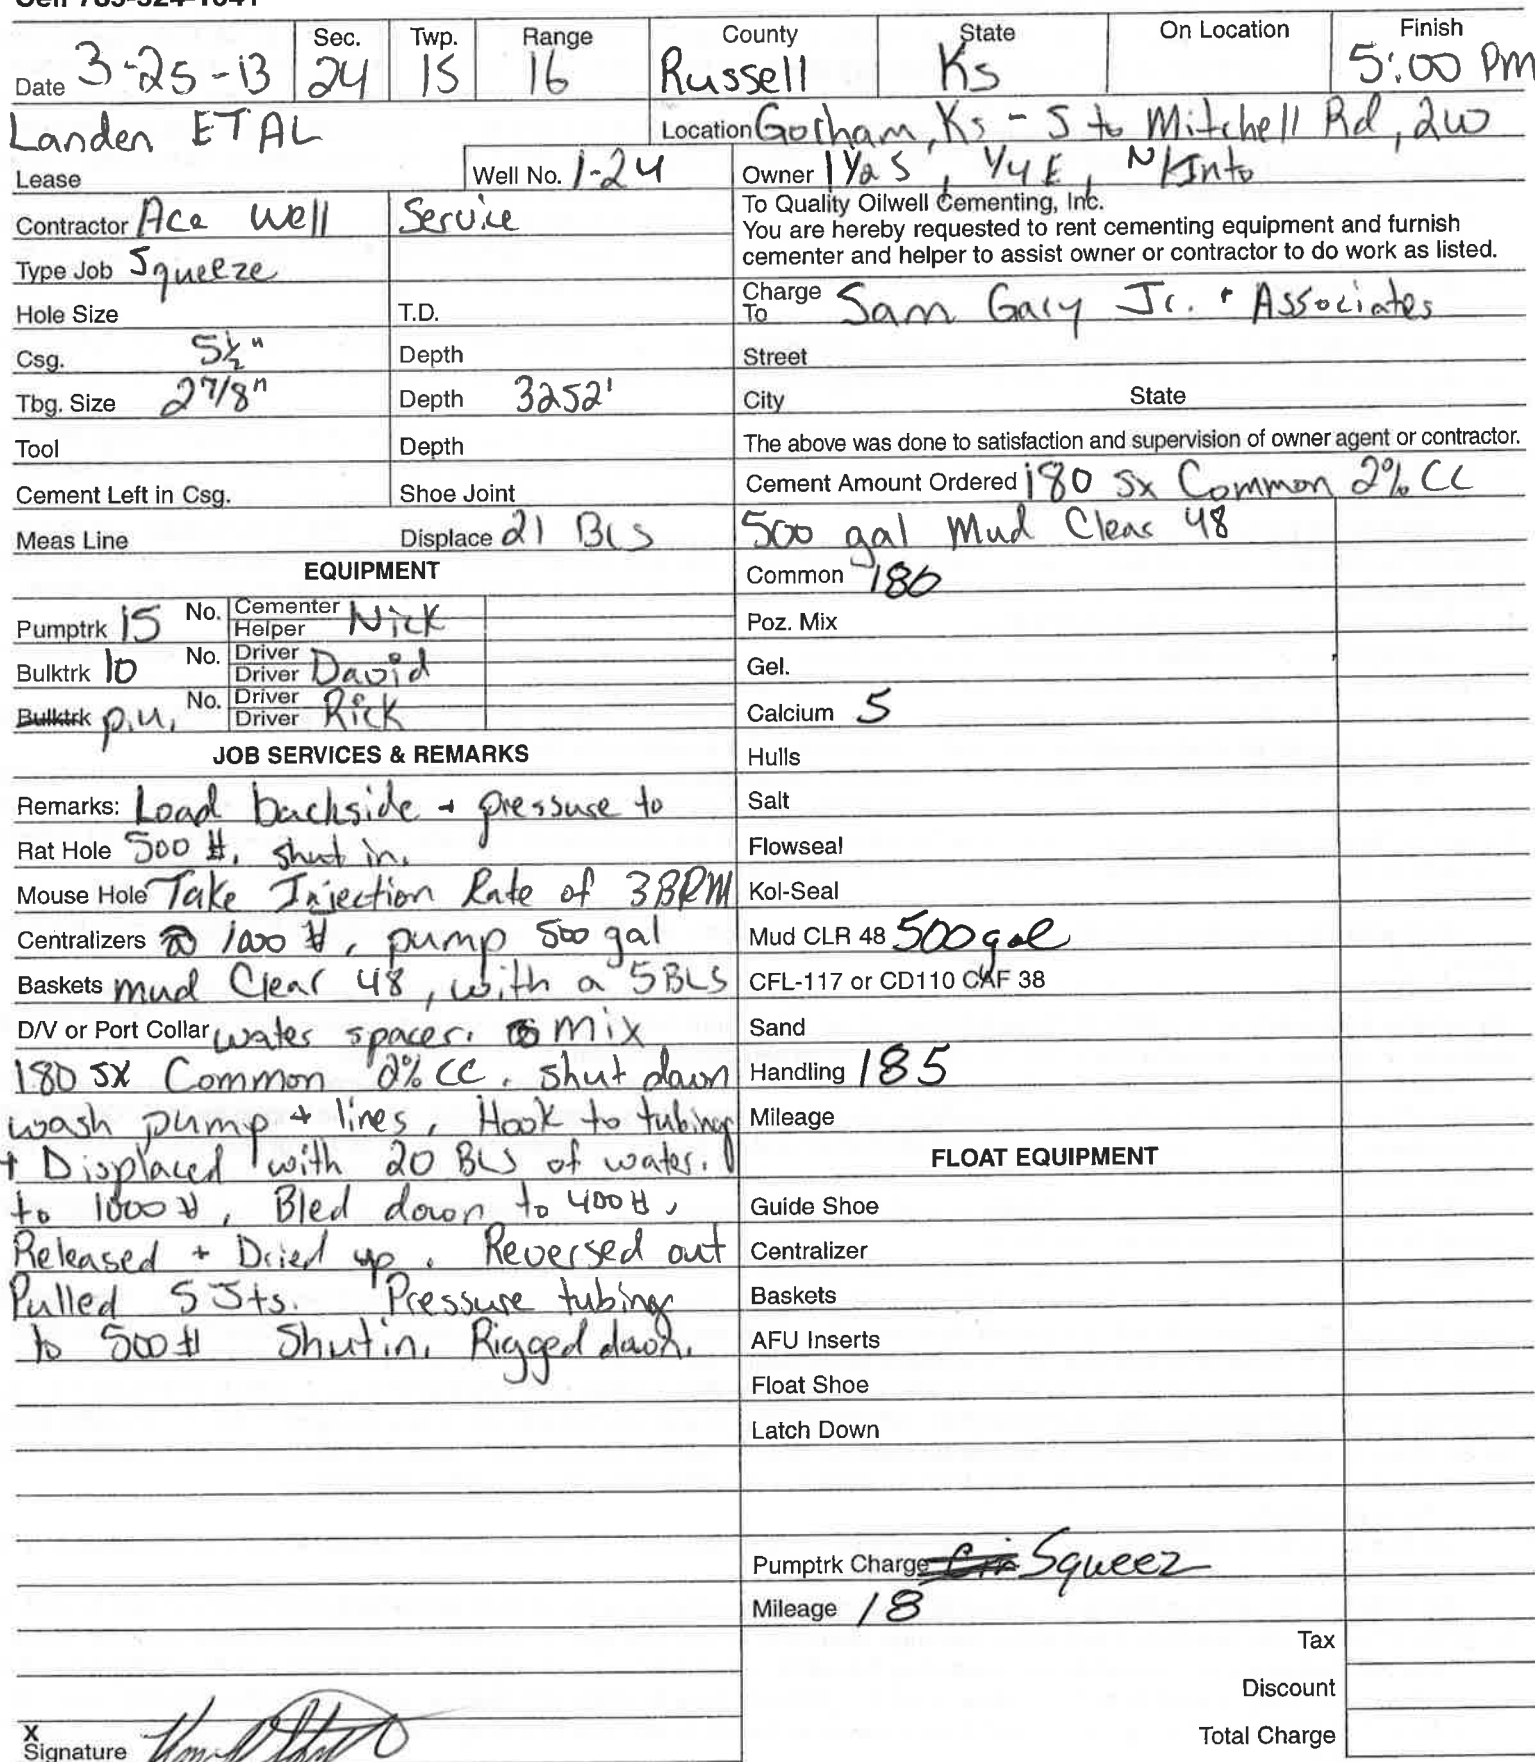 Sec. Twp. Range County State On Location Finish
Date 3-25-13 24 15 16 Russell Ks 5:00 PM
Landen ETAL Location Gorham, Ks - S to Mitchell Rd, 2W
Lease Well No. 1-24 Owner 1 1/2 S, 1/4 E, N/Into
Contractor Ace Well Service
To Quality Oilwell Cementing, Inc.
You are hereby requested to rent cementing equipment and furnish
cementer and helper to assist owner or contractor to do work as listed.
Type Job Squeeze
Hole Size T.D. Charge To Sam Gary Jr. + Associates
Csg. 5½" Depth Street
Tbg. Size 2 7/8" Depth 3252' City State
Tool Depth The above was done to satisfaction and supervision of owner agent or contractor.
Cement Left in Csg. Shoe Joint Cement Amount Ordered 180 sx Common 2% CC
Meas Line Displace 21 BLS 500 gal Mud Clear 48
EQUIPMENT
Pumptrk 15 No. Cementer Helper Nick
Bulktrk 10 No. Driver Driver David
Bulktrk p.u. No. Driver Driver Rick
JOB SERVICES & REMARKS
Remarks: Load backside + pressure to
Rat Hole 500 #, shut in.
Mouse Hole Take Injection Rate of 3 BPM
Centralizers 1000 #, pump 500 gal
Baskets mud Clear 48, with a 5 BLS
D/V or Port Collar water spacer. mix
180 SX Common 2% CC. shut down
wash pump + lines, Hook to tubing
+ Displaced with 20 BLS of water.
to 1000 #, Bled down to 400 #,
Released + Dried up. Reversed out
Pulled 5 Jts. Pressure tubing
to 500 # Shut in. Rigged down.
X
Signature
Common 180
Poz. Mix
Gel.
Calcium 5
Hulls
Salt
Flowseal
Kol-Seal
Mud CLR 48 500 gal
CFL-117 or CD110 CAF 38
Sand
Handling 185
Mileage
FLOAT EQUIPMENT
Guide Shoe
Centralizer
Baskets
AFU Inserts
Float Shoe
Latch Down
Pumptrk Charge Squeez
Mileage 18
Tax
Discount
Total Charge